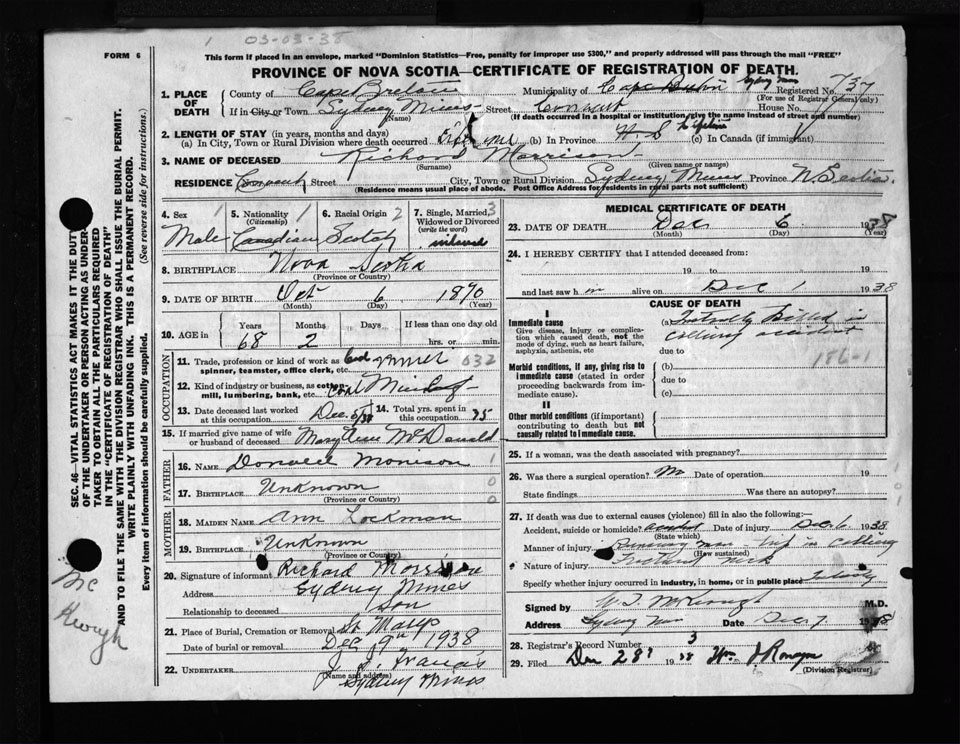 1 03-03-38
FORM 6
This form if placed in an envelope, marked "Dominion Statistics—Free, penalty for improper use $300," and properly addressed will pass through the mail "FREE"
PROVINCE OF NOVA SCOTIA—CERTIFICATE OF REGISTRATION OF DEATH.
1. PLACE OF DEATH County of Cape Breton Municipality of Cape Breton Sydney Mines Registered No. 737
(For use of Registrar General only)
If in City or Town Sydney Mines Street Convent House No.
(Name) (If death occurred in a hospital or institution, give the name instead of street and number)
2. LENGTH OF STAY (in years, months and days)
(a) In City, Town or Rural Division where death occurred (b) In Province N.S. (c) In Canada (if immigrant)
3. NAME OF DECEASED Richard Morrison
(Surname) (Given name or names)
RESIDENCE Convent Street City, Town or Rural Division Sydney Mines Province N. Scotia.
(Residence means usual place of abode. Post Office Address for residents in rural parts not sufficient)
4. Sex 1 Male
5. Nationality 1 (Citizenship) Canadian
6. Racial Origin 2 Scotch
7. Single, Married, 3 Widowed or Divorced (write the word)
8. BIRTHPLACE Nova Scotia
(Province or Country)
9. DATE OF BIRTH Oct 6 1870
(Month) (Day) (Year)
10. AGE in Years 68 Months 2 Days If less than one day old hrs. or min.
OCCUPATION
11. Trade, profession or kind of work as 632
spinner, teamster, office clerk, etc.
12. Kind of industry or business, as cotton mill, lumbering, bank, etc. Coal Mining
13. Date deceased last worked at this occupation Dec. 6/38
14. Total yrs. spent in this occupation
15. If married give name of wife or husband of deceased Mary Ann McDonald
FATHER
16. NAME Morrison 1
17. BIRTHPLACE Unknown 0
(Province or Country) 0
MOTHER
18. MAIDEN NAME Ann Lockman
19. BIRTHPLACE Unknown
(Province or Country)
20. Signature of informant Richard Morrison
Address Sydney Mines
Relationship to deceased Son
21. Place of Burial, Cremation or Removal St Marys
Date of burial or removal Dec 9th 1938
22. UNDERTAKER J. J. Francis
(Name and address) Sydney Mines
MEDICAL CERTIFICATE OF DEATH
23. DATE OF DEATH Dec 6 1938
(Month) (Day) (Year)
24. I HEREBY CERTIFY that I attended deceased from:
19 to 19
and last saw h m alive on Dec 1 1938
CAUSE OF DEATH
I
Immediate cause (a) Instantly Killed in
Give disease, injury or complication which caused death, not the mode of dying, such as heart failure, asphyxia, asthenia, etc
colliery accident
due to
186-1
Morbid conditions, if any, giving rise to immediate cause (stated in order proceeding backwards from immediate cause). (b)
due to
(c)
II
Other morbid conditions (if important) contributing to death but not causally related to immediate cause.
25. If a woman, was the death associated with pregnancy?
26. Was there a surgical operation? No Date of operation 19
State findings Was there an autopsy?
27. If death was due to external causes (violence) fill in also the following:—
Accident, suicide or homicide? accident Date of injury Dec 6 1938
(State which)
Manner of injury in Colliery
(How sustained)
Nature of injury Fractured neck
Specify whether injury occurred in Industry, in home, or in public place Industry
Signed by M.D.
Address Sydney Mines Date Dec. 7 1938
28. Registrar's Record Number 3
29. Filed Dec 28 1938 Wm J Ronayne
(Division Registrar)
SEC. 46—VITAL STATISTICS ACT MAKES IT THE DUTY
OF THE UNDERTAKER OR PERSON ACTING AS UNDERTAKER TO OBTAIN ALL THE PARTICULARS REQUIRED
IN THE "CERTIFICATE OF REGISTRATION OF DEATH"
AND TO FILE THE SAME WITH THE DIVISION REGISTRAR WHO SHALL ISSUE THE BURIAL PERMIT.
WRITE PLAINLY WITH UNFADING INK. THIS IS A PERMANENT RECORD.
Every item of information should be carefully supplied. (See reverse side for instructions.)
Mc
Keough